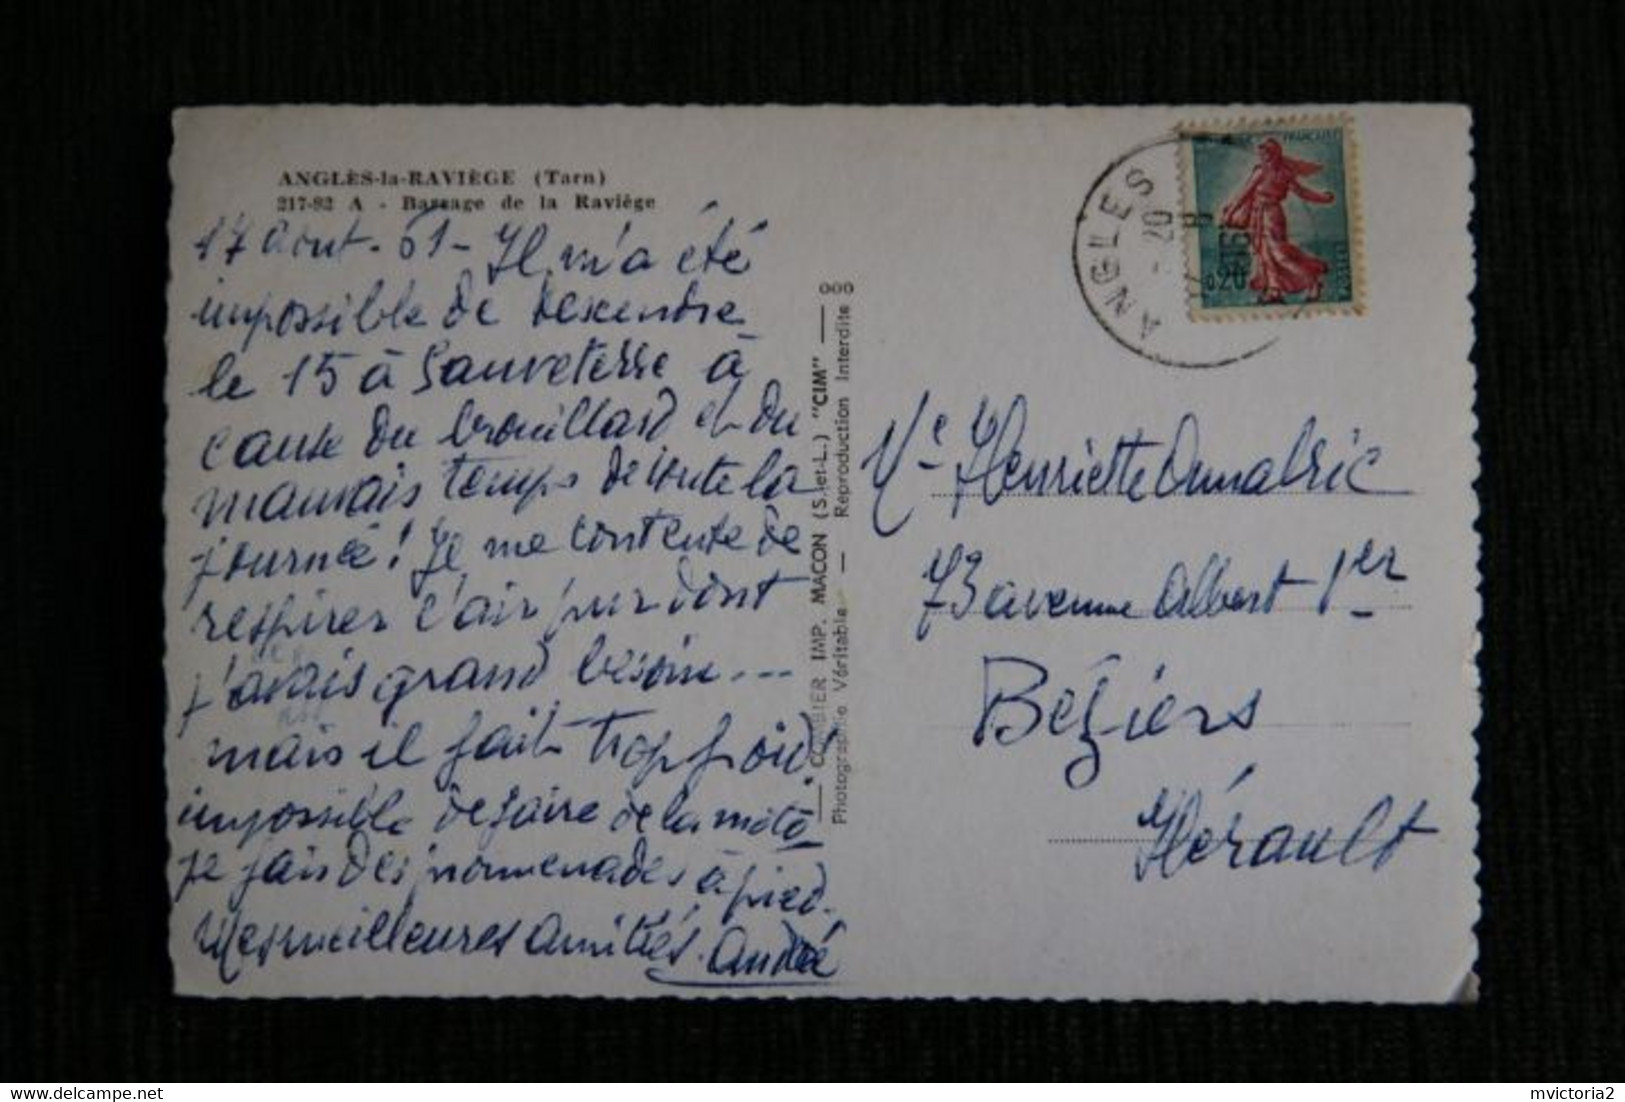 ANGLÈS-la-RAVIÈGE (Tarn)
217-82 A - Barrage de la Raviège
17 Août - 61 - Il m'a été
impossible de descendre
le 15 à Sauveterre à
cause du brouillard et du
mauvais temps de toute la
journée! Je me contente de
respirer l'air pur dont
j'avais grand besoin...
mais il fait trop froid!
impossible de faire de la moto
je fais des promenades à pied.
Mes meilleures amitiés. André
COMBIER IMP. MACON (S.-et-L.) "CIM"
Photographie Véritable — Reproduction Interdite
ooo
ANGLES
20
8
0,20
Me Henriette Amalric
73 avenue Albert 1er
Béziers
Hérault
mvictoria2